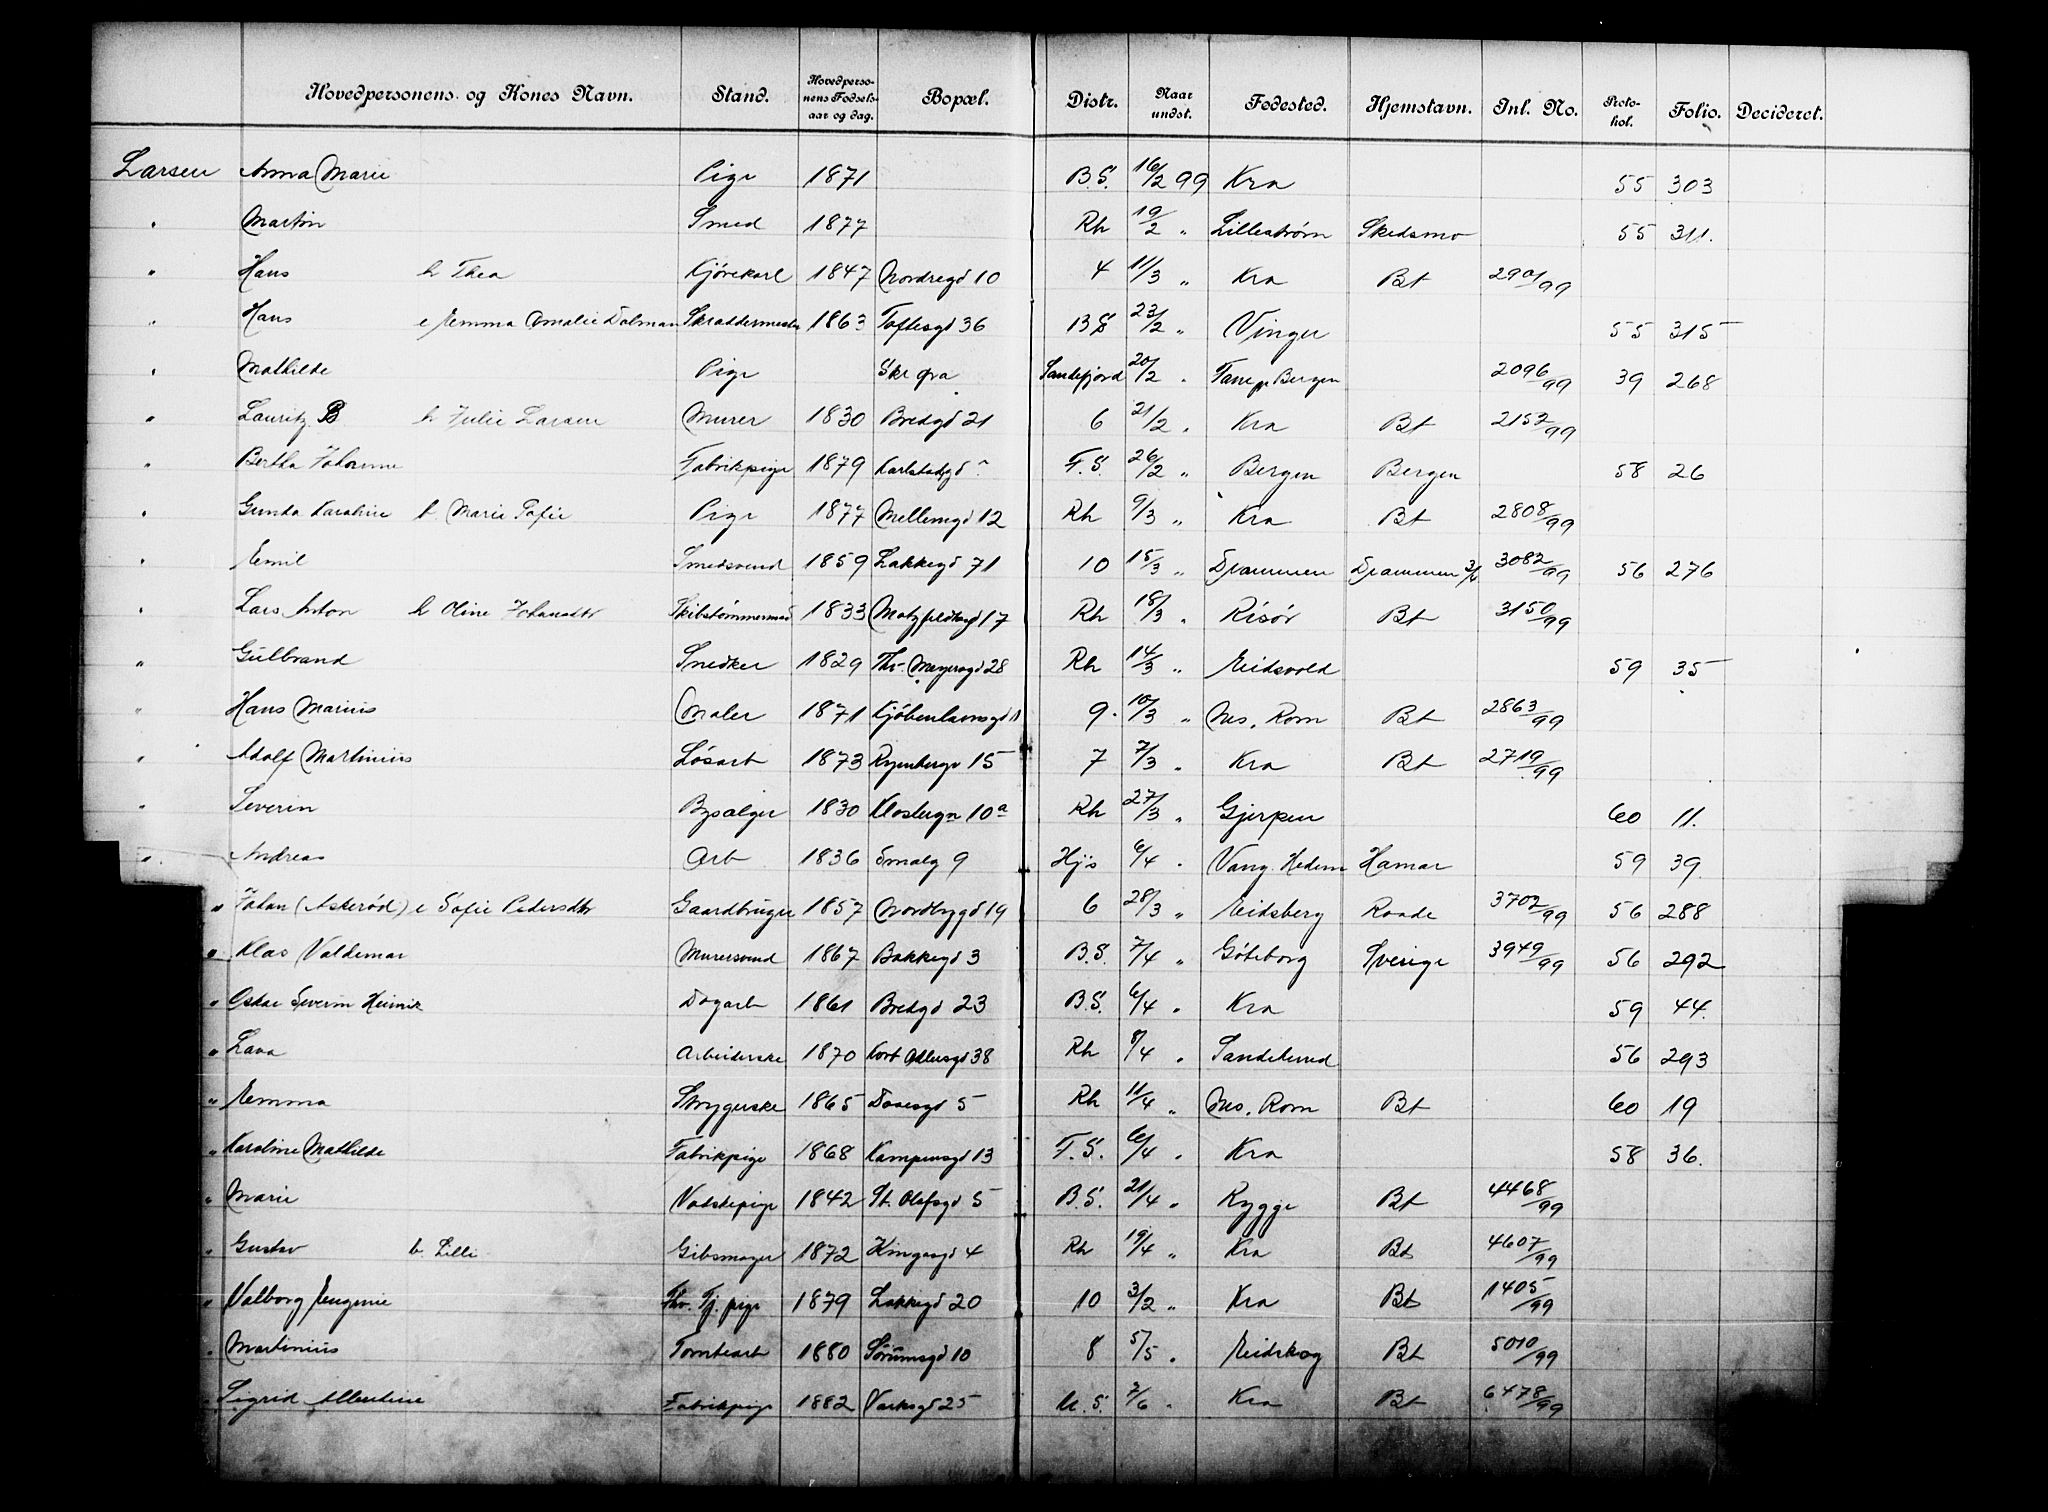 Hovedpersonens og Kones Navn. Stand. Hovedperso-nens Fødsels-aar og dag. Bopæl. Distr. Naar undst. Fødested. Hjemstavn. Inl. No. Proto-kol. Folio. Decideret.
Larsen Anna Marie Pige 1871 B.S. 16/2 99 Kra 55 303
" Martin Smed 1877 Rh 19/2 " Lillestrøm Skedsmo 55 311.
" Hans h Thea Kjørekarl 1847 Nordregd 10 4 11/3 " Kra Bt 2901/99
" Hans e Emma Amalie Dalman Skræddermester 1863 Toftesgd 36 BS 23/2 " Vinger 55 315
" Mathilde Pige Sandefjord 20/2 " Fane pr Bergen 2096/99 39 268
" Lauritz B h Julie Larsen Murer 1830 Bredgd 21 6 21/2 " Kra Bt 2152/99
" Bertha Johanne Fabrikpige 1879 Karlstadgd F.S. 26/2 " Bergen Bergen 58 26
" Gunda Karoline h Marie Sofie Pige 1877 Mellemgd 12 Rh 9/3 " Kra Bt 2808/99
" Emil Smedsvend 1859 Lakkegd 71 10 15/3 " Drammen Drammen 3082/99 56 276
" Lars Anton h Oline Johansdtr Skibstømmermand 1833 Motzfeldtsgd 17 Rh 18/3 " Risør Bt 3150/99
" Gulbrand Snedker 1829 Thv Meyersgd 28 Rh 14/3 " Eidsvold 59 35
" Hans Marius Maler 1871 Kjøbenhavnsgd 11 9 10/3 " Nes, Rom Bt 2863/99
" Adolf Martinius Løsarb 1873 Ryenbergv 15 7 7/3 " Kra Bt 2719/99
" Severin Bysælger 1830 Klostergn 10a Rh 27/3 " Gjerpen 60 11.
" Andreas Arb 1836 Smalg 9 Hjs 6/4 " Vang Hedem Hamar 59 39
" Johan (Askerød) e Sofie Pedersdtr Gaardbruger 1857 Nordbygd 19 6 28/3 " Eidsberg Raade 3702/99 56 288
" Klas Valdemar Murersvend 1867 Bakkegd 3 B.S. 7/4 " Göteborg Sverige 3949/99 56 292
" Oskar Severin Heinrik Dagarb 1861 Bredgd 23 B.S. 6/4 " Kra 59 44.
" Lava Arbeiderske 1870 Kort Adlersgd 38 Rh 8/4 " Sandelund 56 293
" Emma Strygerske 1865 Daasgd 5 Rh 11/4 " Nes, Rom Bt 60 19
" Karoline Mathilde Fabrikpige 1868 Kampensgd 13 F.S. 6/4 " Kra 58 36.
" Marie Vaskepige 1842 St. Olafsgd 5 B.S. 21/4 " Rygge Bt 4468/99
" Gustav h Lilli Gibsmager 1872 Kingosgd 4 Rh 19/4 " Kra Bt 4607/99
" Valborg Eugenie Thv. Tj. pige 1879 Lakkegd 20 10 3/2 " Kra Bt 1405/99
" Martinius Tomtearb 1880 Sørumsgd 10 8 5/5 " Eidskog Bt 5010/99
" Sigrid Albertine Fabrikpige 1882 Verksgd 25 U.S. 7/6 " Kra Bt 6478/99